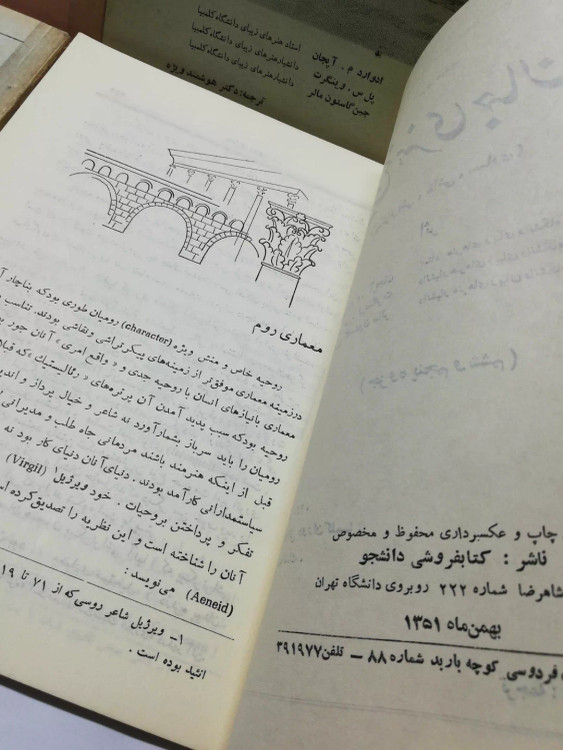 ادوارد م. آپجان استاد هنرهای زیبای دانشگاه کلمبیا
پل س. وینگرت دانشیار هنرهای زیبای دانشگاه کلمبیا
جین گاستون مالر دانشیار هنرهای زیبای دانشگاه کلمبیا
ترجمه: دکتر هوشمند ویژه
معماری روم
روحیه خاص و منش ویژه (character) رومیان طوری بود که بناچار
در زمینه معماری موفق‌تر از زمینه‌های پیکرتراشی و نقاشی بودند. تناسب
معماری با نیازهای انسان با روحیه جدی و « واقع امری » آنان جور
روحیه بود که سبب پدید آمدن آن پرتره‌های « رئالستیك » که قبلا
رومیان را باید سرباز بشمار آورد نه شاعر و خیال پرداز و
قبل از اینکه هنرمند باشند مردمانی جاه طلب و مدیرانی
سیاستمدارانی کار آمد بودند . دنیای آنان دنیای کار بود نه
تفکر و پرداختن بروحیات . خود ویرژیل۱ (Virgil)
آنان را شناخته است و این نظریه را تصدیق کرده
(Aeneid) می‌نویسد :
۱- ویرژیل شاعر روسی که از ۷۱ تا ۱۹
انئید بوده است .
چاپ و عکسبرداری محفوظ و مخصوص
ناشر : کتابفروشی دانشجو
شاهرضا شماره ۲۲۲ روبروی دانشگاه تهران
بهمن‌ماه ۱۳۵۱
فردوسی کوچه باربد شماره ۸۸ – تلفن ۳۹۱۹۷۷